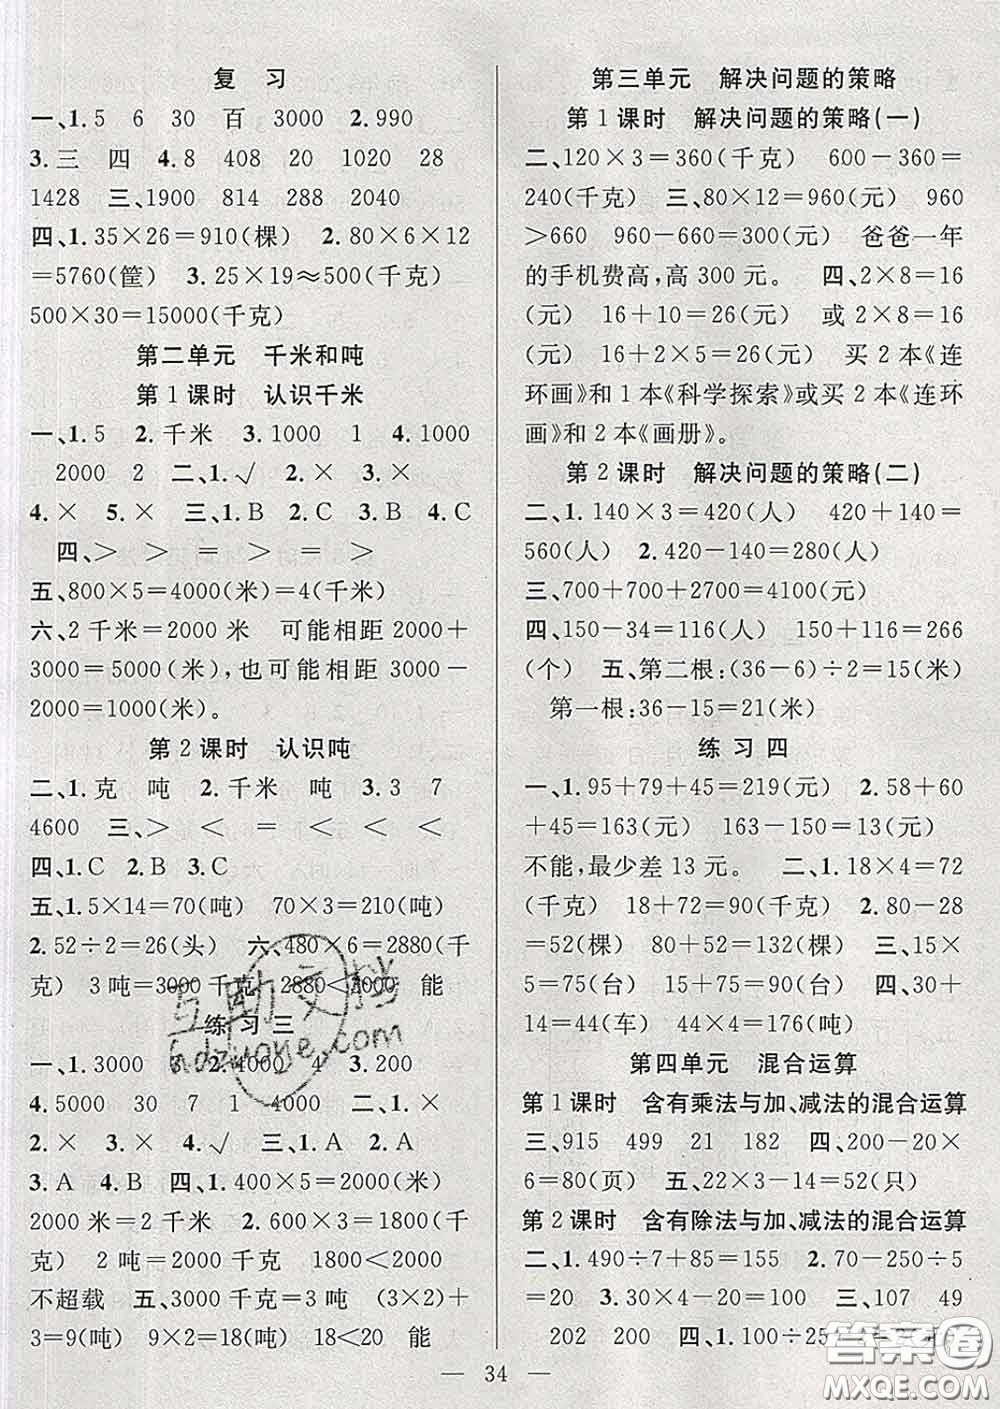 复 习
一、1.5 6 30 百 3000 2.990
3.三 四 4.8 408 20 1020 28
1428 三、1900 814 288 2040
四、1.35×26=910(棵) 2.80×6×12
=5760(筐) 3.25×19≈500(千克)
500×30=15000(千克)
第二单元 千米和吨
第1课时 认识千米
一、1.5 2.千米 3.1000 1 4.1000
2000 2 二、1.√ 2.× 3.×
4.× 5.× 三、1.B 2.C 3.B 4.C
四、> > = = >
五、800×5=4000(米)=4(千米)
六、2千米=2000米 可能相距2000+
3000=5000(米),也可能相距3000-
2000=1000(米)。
第2课时 认识吨
二、1.克 吨 2.千米 吨 3.3 7
4600 三、> < = < < <
四、1.C 2.B 3.C
五、1.5×14=70(吨) 70×3=210(吨)
2.52÷2=26(头) 六、480×6=2880(千
克) 3吨=3000千克 2880<3000 能
练习三
一、1.3000 3 2.4000 4 3.200
4.5000 30 7 1 4000 二、1.×
2.× 3.× 4.√ 三、1.A 2.A
3.A 4.B 四、1.400×5=2000(米)
2000米=2千米 2.600×3=1800(千
克) 2吨=2000千克 1800<2000
不超载 五、3000千克=3吨 (3×2)+
3=9(吨) 9×2=18(吨) 18<20 能
第三单元 解决问题的策略
第1课时 解决问题的策略(一)
二、120×3=360(千克) 600-360=
240(千克) 三、80×12=960(元) 960
>660 960-660=300(元) 爸爸一年
的手机费高,高300元。 四、2×8=16
(元) 16+10=26(元) 或2×8=16
(元) 16+2×5=26(元) 买2本《连
环画》和1本《科学探索》或买2本《连环
画》和2本《画册》。
第2课时 解决问题的策略(二)
二、1.140×3=420(人) 420+140=
560(人) 2.420-140=280(人)
三、700+700+2700=4100(元)
四、150-34=116(人) 150+116=266
(个) 五、第二根:(36-6)÷2=15(米)
第一根:36-15=21(米)
练习四
一、1.95+79+45=219(元) 2.58+60
+45=163(元) 163-150=13(元)
不能,最少差13元。 二、1.18×4=72
(千克) 18+72=90(千克) 2.80-28
=52(棵) 80+52=132(棵) 三、15×
5=75(台) 75+15=90(台) 四、30+
14=44(车) 44×4=176(吨)
第四单元 混合运算
第1课时 含有乘法与加、减法的混合运算
三、915 499 21 182 四、200-20×
6=80(页) 五、22×3-14=52(只)
第2课时 含有除法与加、减法的混合运算
二、1.490÷7+85=155 2.70-250÷5
=20 3.30×4-20=100 三、107 49
202 200 四、1.100÷25
34
互助文档
hdzuoye.com
答案圈
MXQE.COM